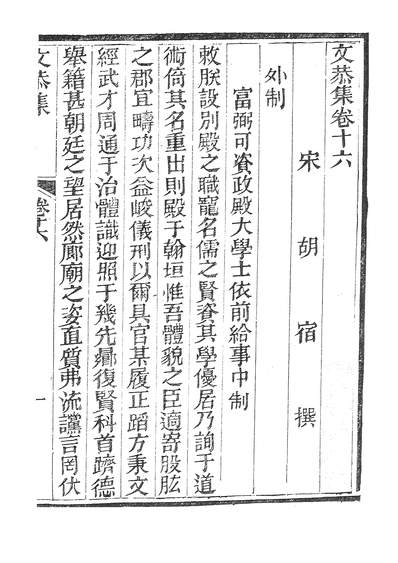 文恭集卷十六
宋 胡宿 撰
外制
富弼可資政殿大學士依前給事中制
敕朕設別殿之職寵名儒之賢資其學優居乃詢于道
術倚其名重出則殿于翰垣惟吾體貌之臣適寄股肱
之郡宜疇功次益峻儀刑以爾具官某履正蹈方秉文
經武才周通于治體識迎照于幾先歸復賢科首躋德
舉籍甚朝廷之望居然廊廟之姿直質弗流讜言罔伏
文恭集
卷十六
一